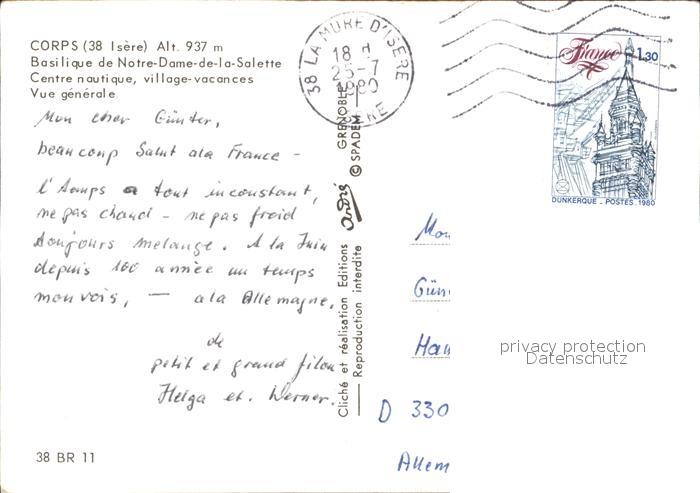 CORPS (38 Isère) Alt. 937 m
Basilique de Notre-Dame-de-la-Salette
Centre nautique, village-vacances
Vue générale
Mon cher Günter,
beaucoup Salut a la France -
l'temps a tout inconstant,
ne pas chaud - ne pas froid
toujours melange. A la Juin
depuis 100 annèe un temps
mauvois, — a la Allemagne.
de
petit et grand filou
Helga et. Werner.
38 BR 11
38 LA MURE D'ISERE
18 H
25-7
1980
ISERE
GRENOBLE
© SPADEM
andré
Cliché et réalisation Editions
Reproduction interdite
France 1,30
DUNKERQUE - POSTES 1980
Mon
Gün
Han
privacy protection
Datenschutz
D 330
Allem